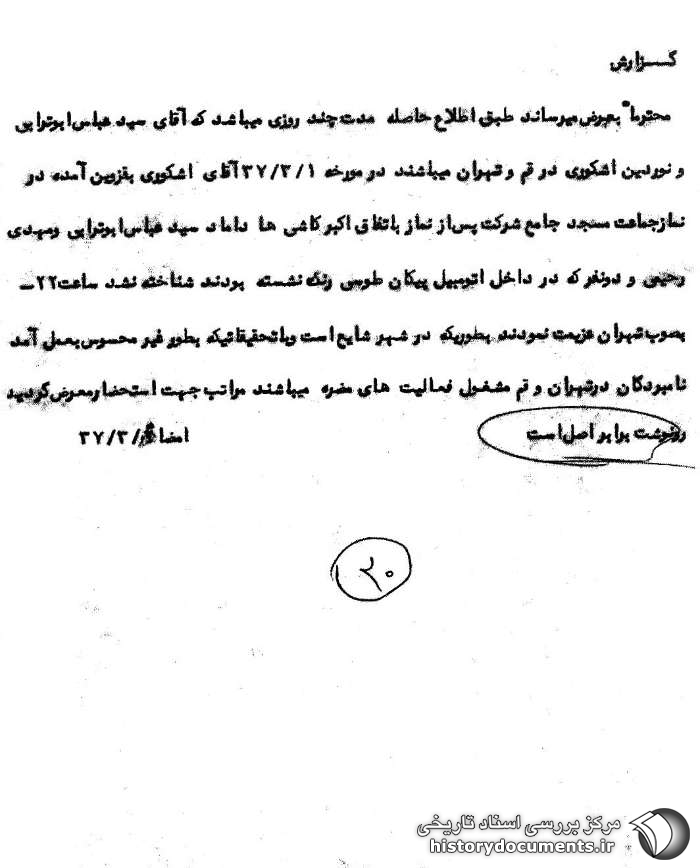 گـــزارش
محترما" بعرض میرساند طبق اطلاع حاصله مدت چند روزی میباشد که آقای سید عباس ابوترابی
و نوردین اشکوری در قم و تهران میباشند در مورخه ۳۷/۳/۱ آقای اشکوری بقزوین آمده در
نماز جماعت مسجد جامع شرکت پس از نماز باتفاق اکبر کاشی ها داماد سید عباس ابوترابی و مهدی
رحیمی و دونفر که در داخل اتومبیل پیکان طوسی رنگ نشسته بودند شناخته نشد ساعت ۲۲ـ
بصوب تهران عزیمت نمودند بطوریکه در شهر شایع است و با تحقیقاتیکه بطور غیر محسوس بعمل آمد
نامبردگان در تهران و قم مشغول فعالیت های مضره میباشند مراتب جهت استحضار معرض گردید
رونوشت برابر اصل است امضاء ۳۷/۳/
۲۰
مرکز بررسی اسناد تاریخی
historydocuments.ir